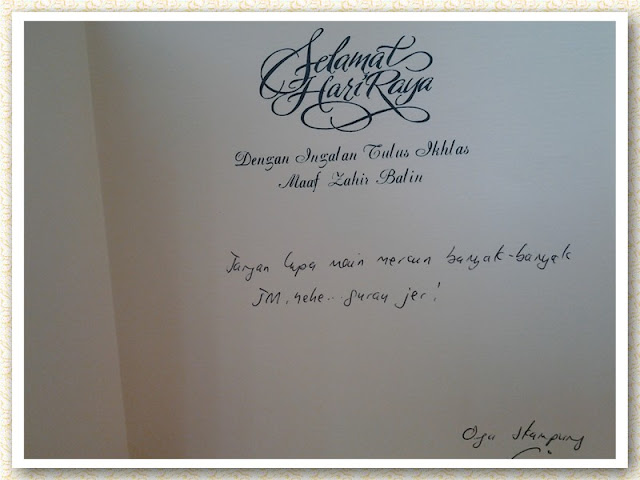 Selamat
Hari Raya
Dengan Ingatan Tulus Ikhlas
Maaf Zahir Batin
Jangan lupa main mercun banyak-banyak
JM, hehe... gurau jer!